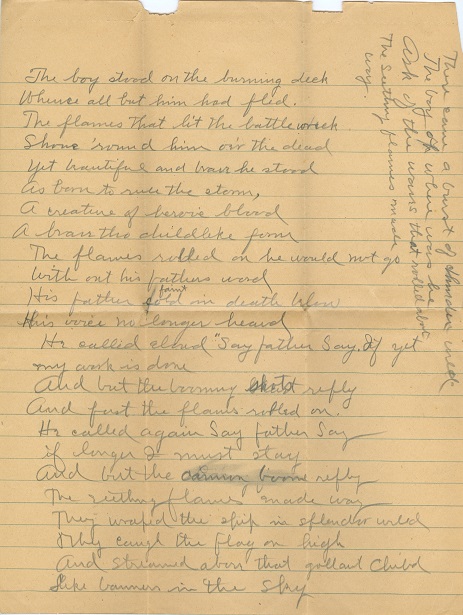 The boy stood on the burning deck
Whence all but him had fled.
The flames that lit the battle wreck
Shone 'round him oer the dead
Yet beautiful and brave he stood
As born to rule the storm,
A creature of heroic blood
A brave tho childlike form
The flames rolled on he would not go
With out his fathers word
His father faint in death below
His voice no longer heard
He called aloud "Say father Say. If yet
my work is done
And but the booming shots reply
And fast the flames rolled on.
He called again Say father Say
if longer I must stay
And but the cannon boom reply
The seething flames made way
They wraped the ship in splendor wild
They caugh the flag on high
And streamed above that gallant Child
Like banners in the sky
There came a burst of thunder
The boy oh where was he
Ask of the waves that rolled about
The seething flames made
way.